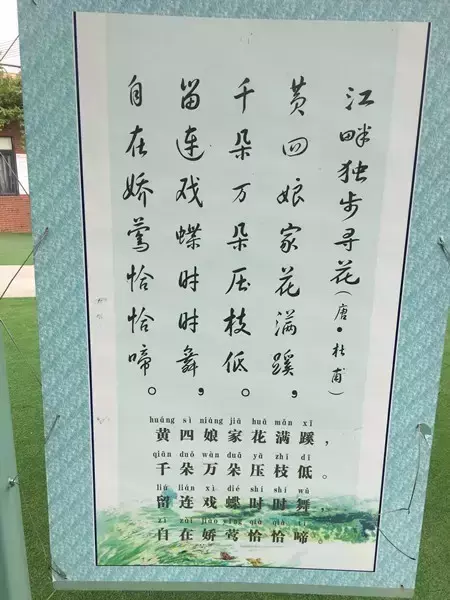 江畔独步寻花(唐·杜甫)
黄四娘家花满蹊,
千朵万朵压枝低。
留连戏蝶时时舞,
自在娇莺恰恰啼。
huáng sì niáng jiā huā mǎn xī
黄四娘家花满蹊,
qiān duǒ wàn duǒ yā zhī dī
千朵万朵压枝低。
liú lián xì dié shí shí wǔ
留连戏蝶时时舞,
zì zài jiāo yīng qià qià tí
自在娇莺恰恰啼